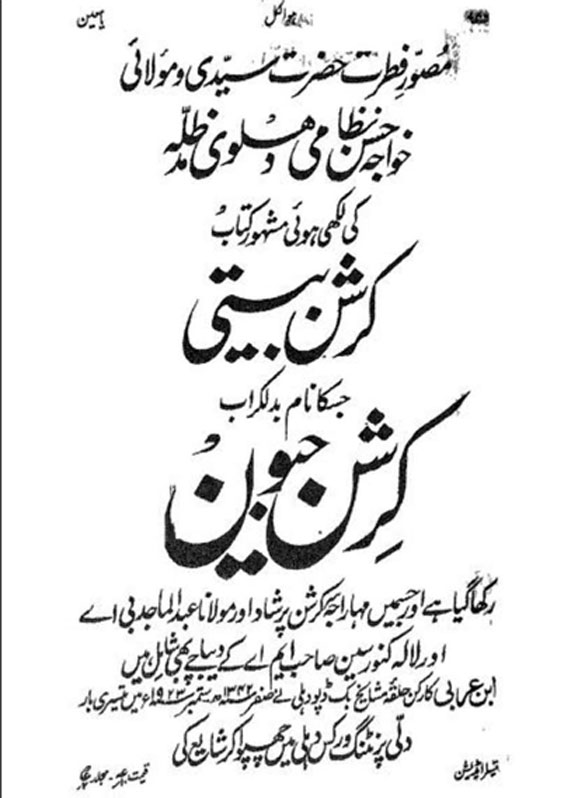 یا معین
ہوالکل
مصوّرِ فطرت حضرت سیّدی و مولائی
خواجہ حسن نظامی دہلوی مدظلّہ
کی لکھی ہوئی مشہور کتاب
کرشن بیتی
جسکا نام بدلکر اب
کِرشن جیون
رکھا گیا ہے اور جسمیں مہاراجہ کرشن پرشاد اور مولانا عبدالماجد بی اے
اور لالہ کنور سین صاحب ایم اے کے دیباچے بھی شامل ہیں
ابن عربی کارکن حلقہ مشایخ بک ڈپو دہلی نے صفر ۱۳۴۲ھ ستمبر ۱۹۲۳ء میں تیسری بار
دلّی پرنٹنگ ورکس دہلی میں چھپوا کر شایع کی
تیسرا ایڈیشن
قیمت مجلد